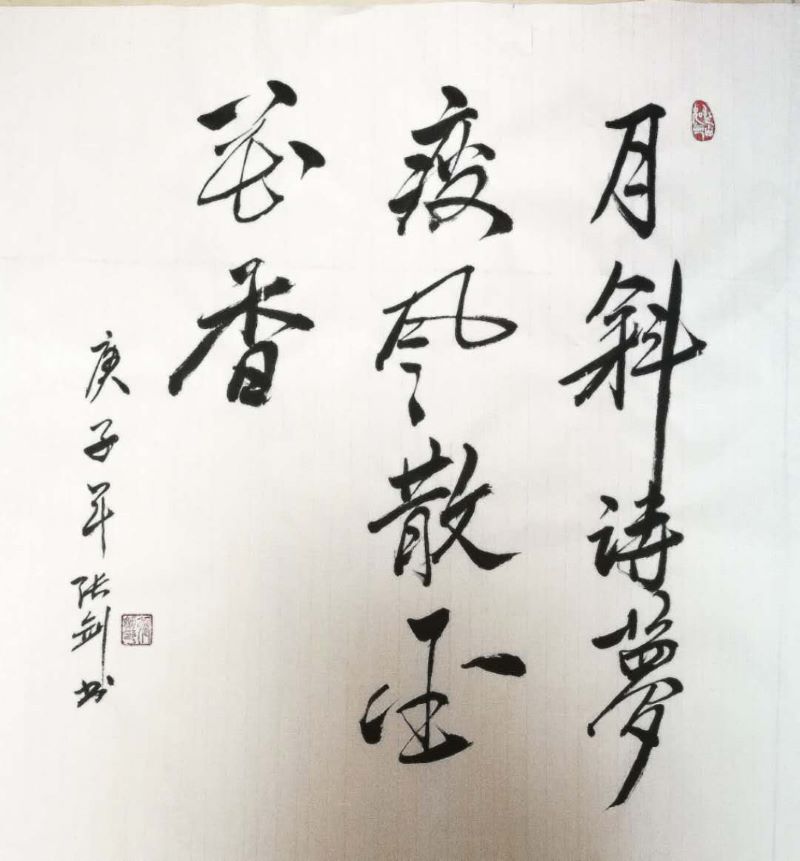 月斜诗夢
瘦风散墨
花香
庚子年张剑书